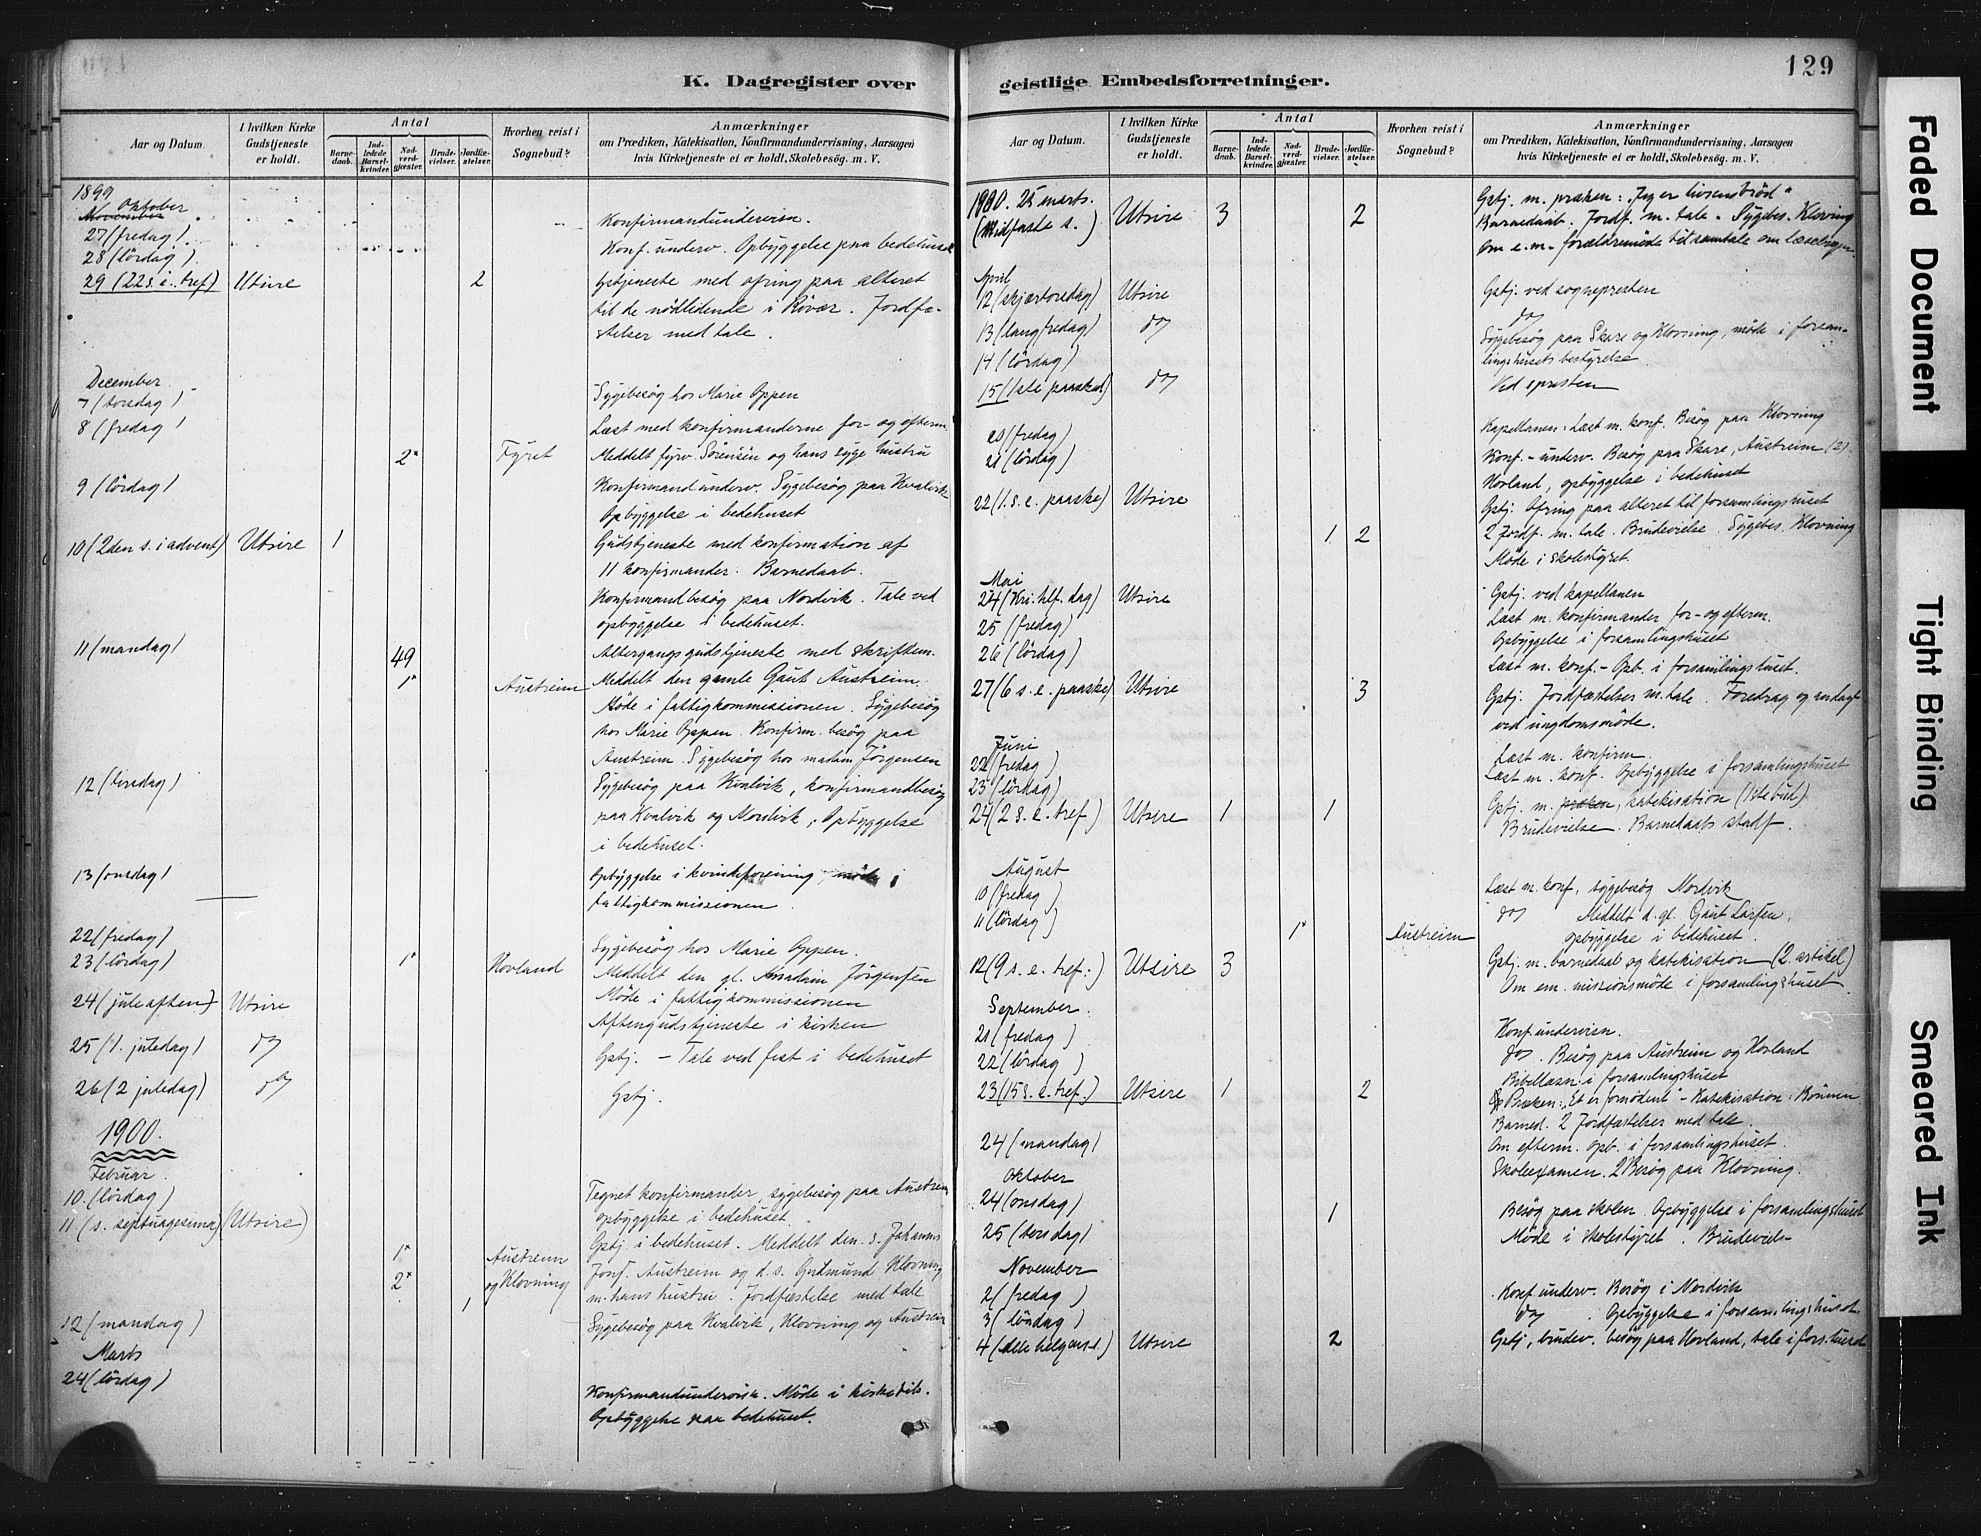 K. Dagregister over
Aar og Datum.
I hvilken Kirke Gudstjeneste er holdt.
Antal
Barnedaab.
Indledede Barselkvinder.
Nadverdgjæster.
Brudevielser.
Jordfæstelser.
Hvorhen reist i Sognebud?
Anmærkninger
om Prædiken, Katekisation, Konfirmandundervisning, Aarsagen
hvis Kirketjeneste ei er holdt, Skolebesøg. m. V.
1899
Oktober
November
27 (fredag) Konfirmandundervisn.
28 (lördag) Konf. underv. Opbyggelse paa bedehuset
29 (22 s. e. tref) Utsire 2 Gstjeneste med ofring paa alteret
til de nödlidende i Rövær. Jordfæ-
stelser med tale.
December
7 (torsdag) Sygebesög hos Marie Oppen
8 (fredag) Læst med konfirmanderne for- og efterm.
2* Fyret Meddelt fyrv. Sörensen og hans syge hustru
9 (lördag) Konfirmandunderv. Sygebesög paa Kvalvik
Opbyggelse i bedehuset
10 (2den s. i advent) Utsire 1 Gudstjeneste med konfirmation af
11 konfirmander. Barnedaab.
Konfirmandbesög paa Nordvik. Tale ved
opbyggelse i bedehuset.
11 (mandag) 49 Altergangsgudstjeneste med skriftem.
1* Austreim Meddelt den gamle Gaut Austreim.
Möde i fattigkommissionen. Sygebesög
hos Marie Oppen. Konfirm. besög paa
Austreim. Sygebesög hos madam Jörgensen
12 (tirsdag) Sygebesög paa Kvalvik, konfirmandbesög
paa Kvalvik og Nordvik; Opbyggelse
i bedehuset.
13 (onsdag) Opbyggelse i kvindeforening, möde i
fattigkommissionen.
22 (fredag) Sygebesög hos Marie Oppen.
23 (lördag) 1* Hovland Meddelt den gl. Madam Jörgensen
Möde i fattigkommissionen
24 (juleaften) Utsire Aftengudstjeneste i kirken
25 (1. juledag) do Gstj. - Tale ved fest i bedehuset
26 (2 juledag) do Gstj.
1900.
Februar.
10. (lördag) Tegnet konfirmander, sygebesög paa Austreim
opbyggelse i bedehuset.
11. (s. septuagesima) (Utsire) Gstj. i bedehuset. Meddelt den s. Johannes
1* Austreim Jonf. Austreim og d. s. Gutmund Klovning
2* og Klovning m. hans hustru. Jordfæstelse med tale
1
12 (mandag) Sygebesög paa Kvalvik, Klovning og Austreim
Marts
24 (lördag) Konfirmandundervisn. Möde i kirketils.
Opbyggelse paa bedehuset.
129
geistlige Embedsforretninger.
Aar og Datum.
I hvilken Kirke Gudstjeneste er holdt.
Antal
Barnedaab.
Indledede Barselkvinder.
Nadverdgjæster.
Brudevielser.
Jordfæstelser.
Hvorhen reist i Sognebud?
Anmærkninger
om Prædiken, Katekisation, Konfirmandundervisning, Aarsagen
hvis Kirketjeneste ei er holdt, Skolebesøg. m. V.
1900. 25 marts. Gstj. m. præken: "Jeg er livsens bröd"
(Midfaste s.) Utsire 3 2 Barnedaab. Jordf. m. tale. Sygebes. Klovning
Om e. m. forældremöde til samtale om læsebogen.
April
12 (skjærtorsdag) Utsire Gstj. ved sognepresten
13 (langfredag) do do
14 (lördag) Sygebesög paa Skare og Klovning, möde i forsam-
lingshusets bestyrelse
15 (1ste paasked.) do Ved spresten
20 (fredag) Kapellanen: Læst m. konf. Besög paa Klovning
21 (lördag) Konf.-underv. Besög paa Skare, Austreim (2),
Hovland, opbyggelse i bedehuset
22 (1. s. e. paaske) Utsire Gstj. Ofring paa alteret til forsamlingshuset
1 2 2 Jordf. m. tale. Brudevielse. Sygebes. Klovning
Möde i skolestyret.
Mai
24 (Kri. hlf. dag) Utsire Gstj. ved kapellanen
25 (fredag) Læst m. konfirmander for- og efterm.
Opbyggelse i forsamlingshuset
26 (lördag) Læst m. konf. - Opb. i forsamlingshuset.
27 (6 s. e. paaske) Utsire 3 Gstj. Jordfæstelser m. tale. Foredrag og andagt
ved ungdomsmöde.
Juni
22 (fredag) Læst m. konfirm.
23 (lördag) Læst m. konf. Opbyggelse i forsamlingshuset
24 (2 s. e. tref.) Utsire 1 1 Gstj. m. præken, katekisation (1ste bud)
Brudevielse. Barnedaabs stadf.
August
10 (fredag) Læst m. konf, sygebesög Nordvik
11 (lördag) do Meddelt d. gl. Gaut Larsen.
1* Austreim opbyggelse i bedehuset.
12 (9 s. e. tref.) Utsire 3 Gstj. m. barnedaab og katekisation (2. artikel)
Om em. missionsmöde i forsamlingshuset.
September
21 (fredag) Konf. undervisn.
22 (lördag) do. Besög paa Austreim og Hovland
Bibellæsn. i forsamlingshuset
23 (15 s. e. tref.) Utsire 1 2 Præken: "Et er fornödent" - Katekisation: Bönnen
Barned. 2 Jordfæstelser med tale
Om efterm. opb. i forsamlingshuset
24 (mandag) Skoleexamen. 2 Besög paa Klovning.
Oktober
24 (onsdag) Besög paa skolen. Opbyggelse i forsamlingshuset
25 (torsdag) 1 Möde i skolestyret. Brudeviels-
November
2 (fredag) Konf. underv. Besög i Nordvik
3 (lördag) do. Opbyggelse i forsamlingshuset.
4 (alle helgens s.) Utsire 2 Gstj, brudev. besög paa Hovland, tale i fors.huset
Faded Document
Tight Binding
Smeared Ink